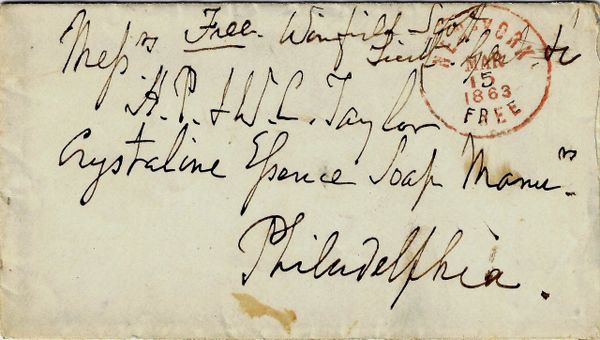 Free. Winfield Scott
Lieut. Genl. &c
Mess.rs
H.P. & W.C. Taylor
Crystaline Essence Soap Manu.rs
Philadelphia.
NEW YORK
MAR
15
1863
FREE